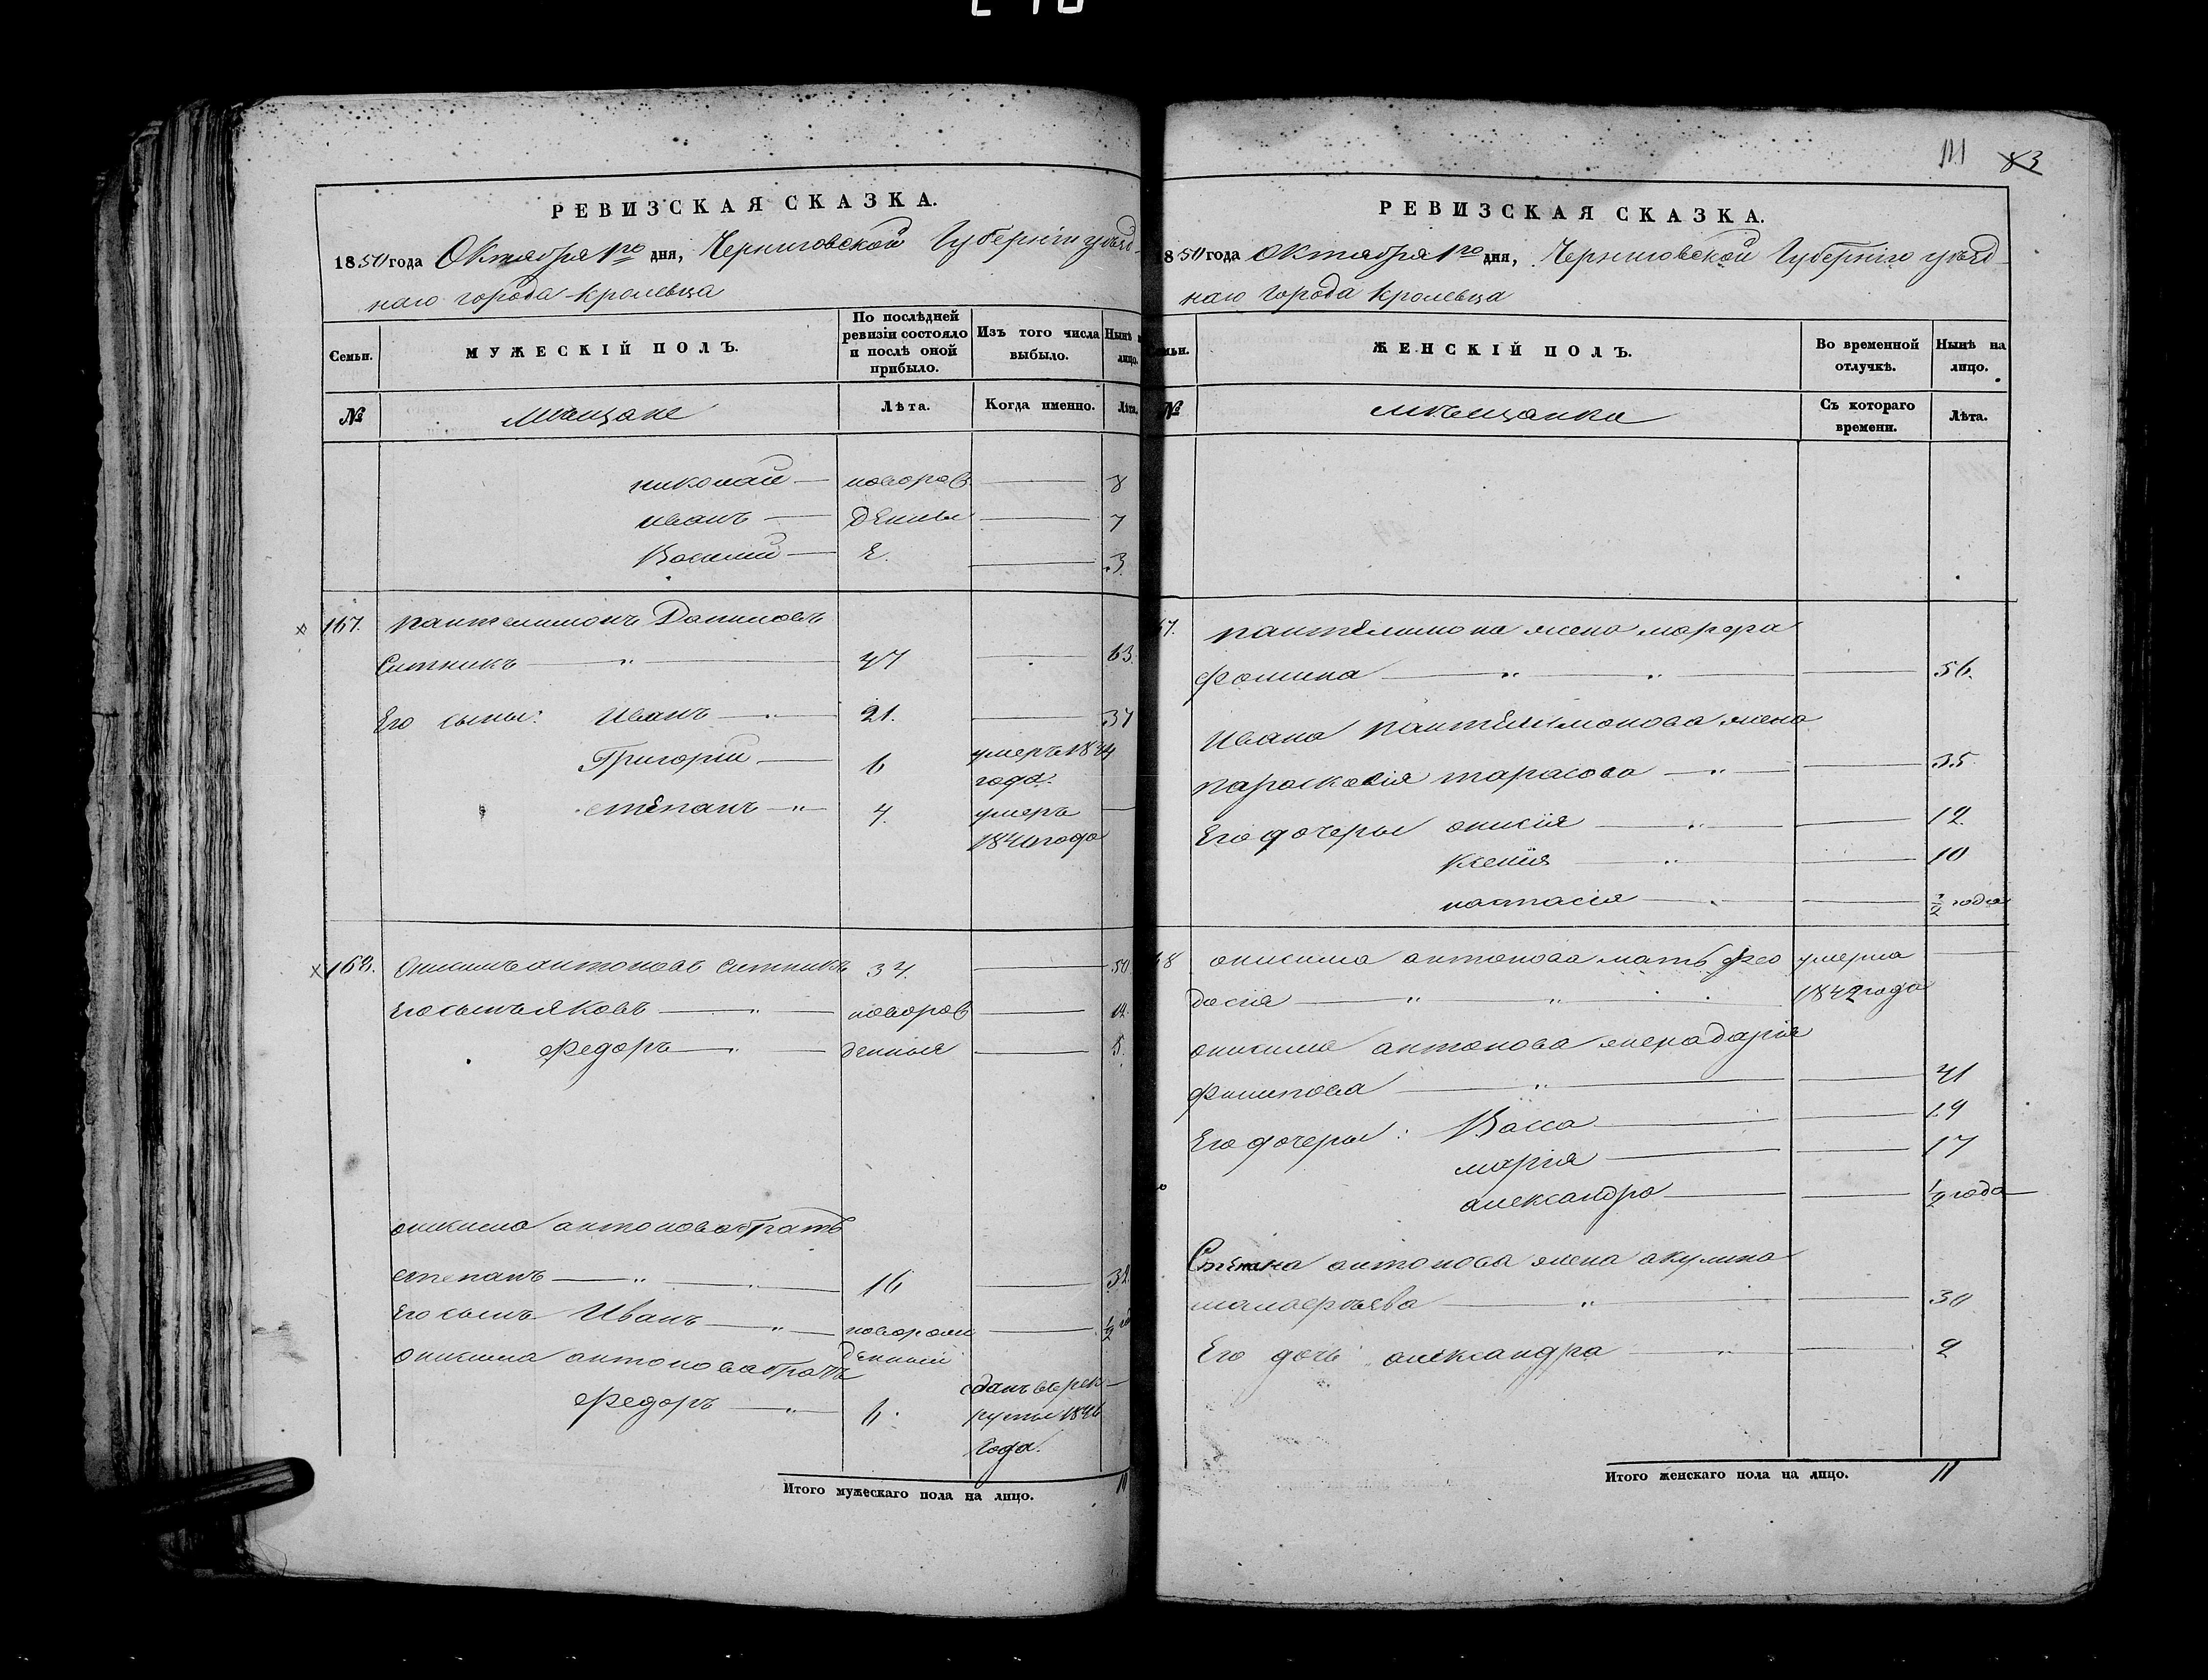 111 83
РЕВИЗСКАЯ СКАЗКА.
1850 года Октября 1го дня, Черниговской Губерніи уѣзд-
наго города Кролевца
Семьи. МУЖЕСКІЙ ПОЛЪ. По послѣдней ревизіи состояло и послѣ оной прибыло. Изъ того числа выбыло. Нынѣ лицо.
№ Мѣщане Лѣта. Когда именно. Лѣта.
николай — новорож — 8
иванъ — денны — 7
Василий — Е. — 3.
167. Пантелимонъ Даниловъ
Ситникъ — " — 47 — 63.
Его сыны: Иванъ — " — 21. — 37
Григорий — 6 умеръ 1844
года.
степанъ — " — 4. умеръ —
1840 года
168. Онисимъ антоновъ ситникъ 34. — 50
Его сынъ яковъ — " — новорож — 12.
Федоръ — " — денныя — 5.
онисима антонова братъ
степанъ — " — 16 — 32.
Его сынъ Иванъ — " — новорож — 1/2 год
онисима антонова братъ денный
Федоръ — " — 6. сданъ въ рек-
руты 1846
года.
Итого мужескаго пола на лицо. 10
РЕВИЗСКАЯ СКАЗКА.
850 года Октября 1го дня, Черниговской Губерніи уѣзд-
наго города Кролевца
ЖЕНСКІЙ ПОЛЪ. Во временной отлучкѣ. Нынѣ на лицо.
№ мѣщанки Съ котораго времени. Лѣта.
67. пантелимона жена марфа
фомина — " — " — 56.
Ивана пантелимонова жена
парасковія тарасова — " — 35.
Его дочеры онисія — " — 12.
ксенія — " — 10
настасія — " — 1/2 года
68 онисима антонова мать фео умерла —
досія — " — " — 1842 года
онисима антонова жена дарія
филипова — " — 41
Его дочеры: Васса — 19
марія — 17
александра — 1/2 года
Степана антонова жена акулина
— " — 30
Его дочь александра — " — 2
Итого женскаго пола на лицо. 11